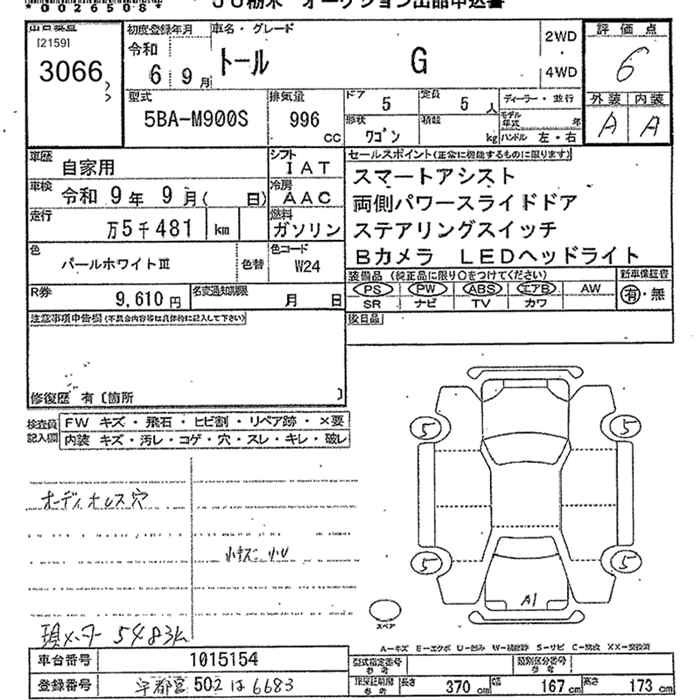 *0026508*
JU栃木 オークション出品申込書
出品番号
[2159]
3066
初度登録年月
令和
6 9月
車名・グレード
トール G
2WD
4WD
評価点
6
外装 内装
A A
型式
5BA-M900S
排気量
996
cc
ドア
5
定員
5 人
ディーラー・並行
モデル年式 年
形状
ワゴン
積載
kg
ハンドル 左・右
車歴
自家用
シフト
IAT
セールスポイント(正常に機能するものに限ります)
スマートアシスト
両側パワースライドドア
ステアリングスイッチ
Bカメラ LEDヘッドライト
車検
令和 9年 9月( 日)
冷房
AAC
走行
万5千481 km
燃料
ガソリン
色
パールホワイトⅢ
色替
色コード
W24
装備品 (純正品に限り○をつけてください)
新車保証書
PS PW ABS エアB AW
有・無
SR ナビ TV カワ
R券
9,610 円
名変通知期限
月 日
注意事項申告欄(不具合内容等は具体的に記入して下さい)
後日品
修復歴 有〔箇所 〕
検査員記入欄
FW キズ・飛石・ヒビ割・リペア跡・×要
内装 キズ・汚レ・コゲ・穴・スレ・キレ・破レ
オーディオレス穴
小キズ小U
現メーター 5483km
5 5
5 5
A1
スペア
A－キズ E－エクボ U－凹み W－補修跡 S－サビ C－腐蝕 XX－交換済
車台番号
1015154
型式指定番号
参考
類別区分番号
参考
登録番号
宇都宮 502 は 6683
参考
長さ 370 cm
幅 167 cm
高さ 173 cm